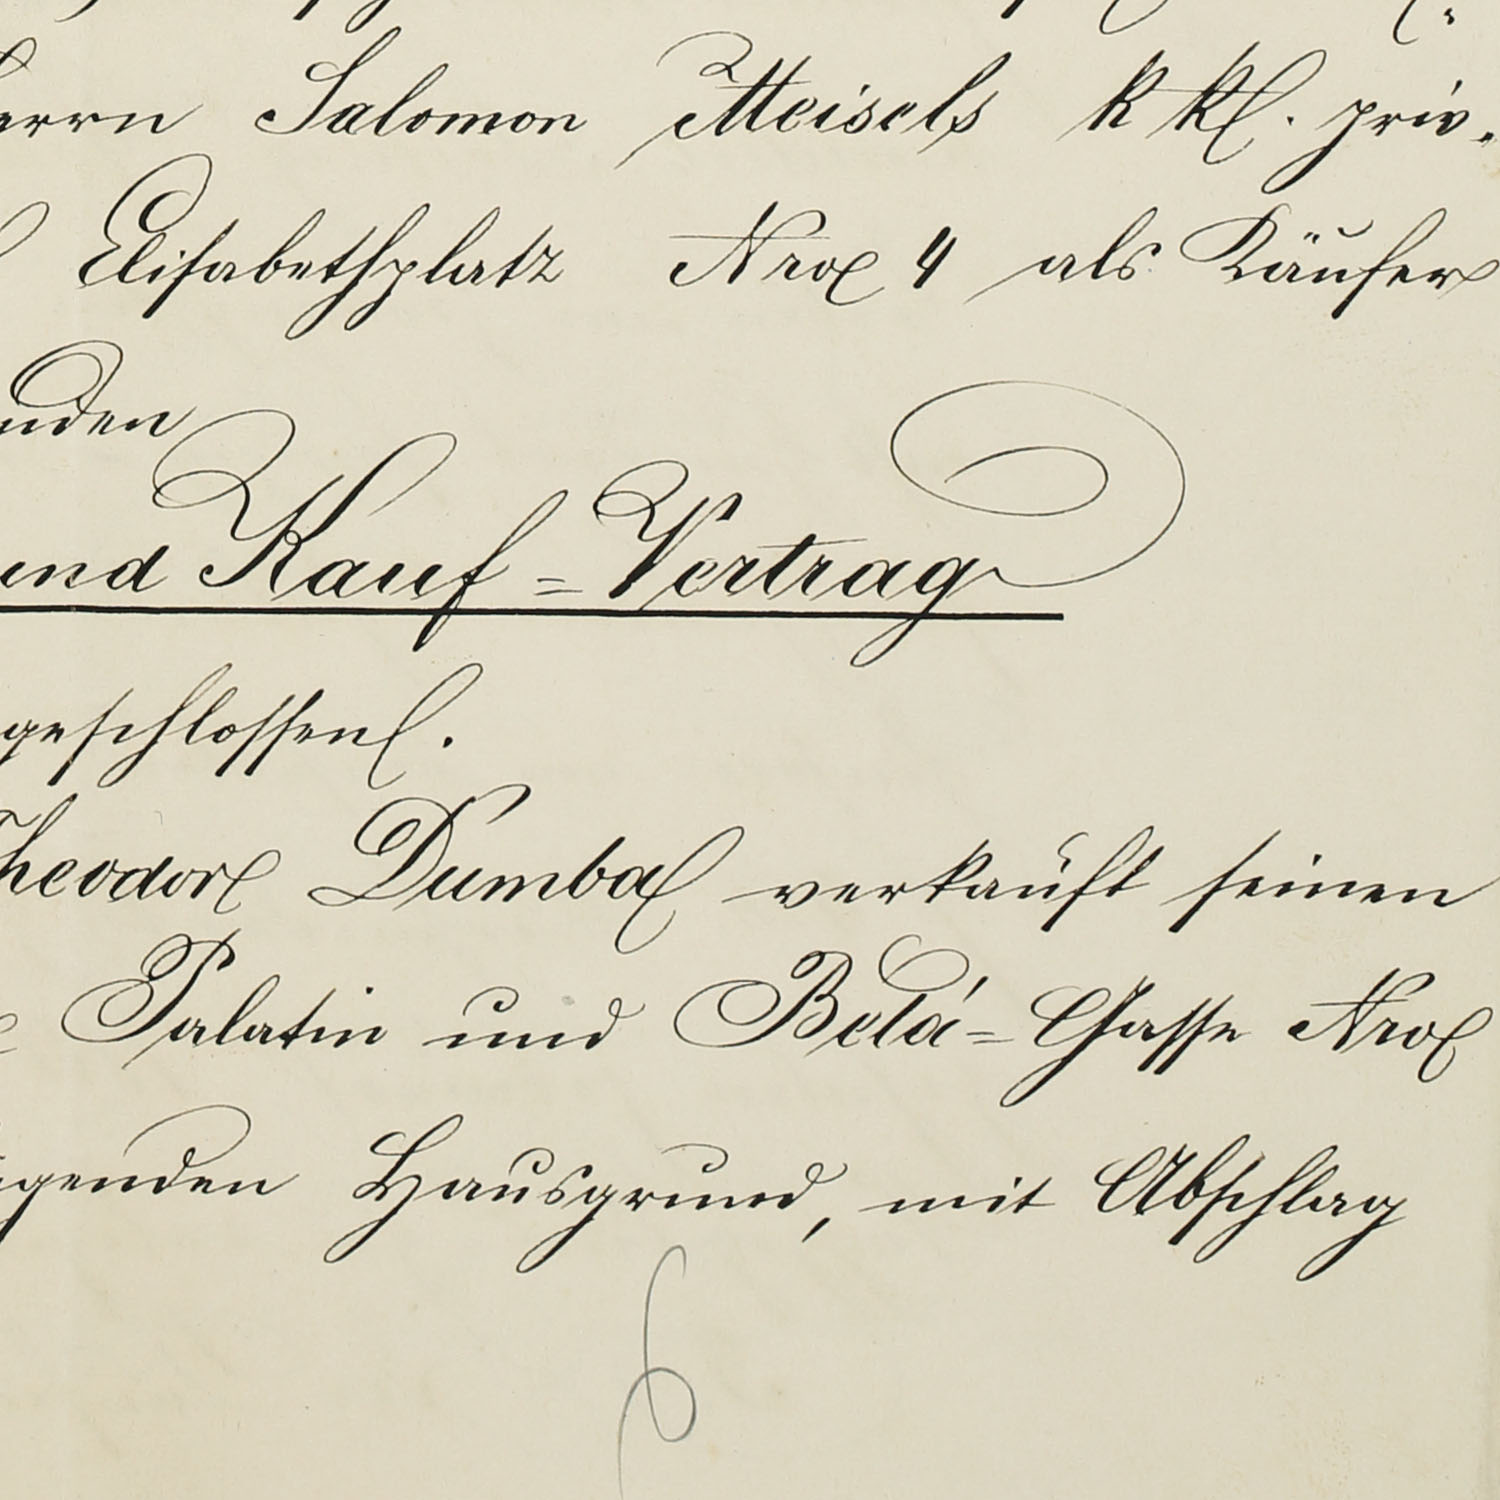 Herrn Salomon Meisels k k. priv.
Elisabethplatz Nro 4 als Käufer
nden
und Kauf=Vertrag
geschlossen.
Theodor Dumba verkauft seinen
Palatin und Belá=Gasse Nro
genden Hausgrund, mit Abschlag